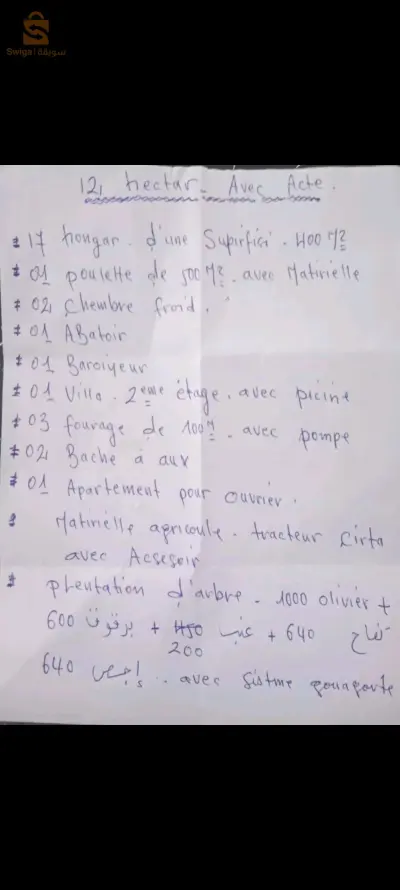 Swiga | سويقة
12, hectar. Avec Acte.
# 17 hongar. d'une Supirfici. 400 M2
# 01 poulette de 500 M2. avec Matirielle
# 02 Chembre froid.
# 01 ABatoir
# 01 Baroiyeur
# 01 Villa. 2eme étage. avec picine
# 03 fourage de 100m. avec pompe
# 02 Bache à aux
# 01 Apartement pour ouvrier.
Matirielle agricoule. tracteur Cirta
avec Acsesoir
# plentation d'arbre. 1000 olivier +
600 برقوق + 450 عنب + 640 تفاح
200
640 إجاص .. avec sistme gouagoute